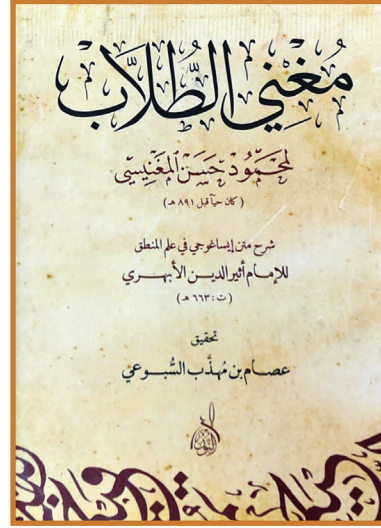 مُغْنِي الطُّلاَّب
لِمَحْمُودْ حَسَن المَغْنِيسِي
( كان حياً قبل ٨٩١ هـ )
شرح متن إيساغوجي في علم المنطق
للإمام أثير الدين الأبهري
( ت : ٦٦٣ هـ )
تحقيق
عصام بن مُهذَّب السُّبوعي